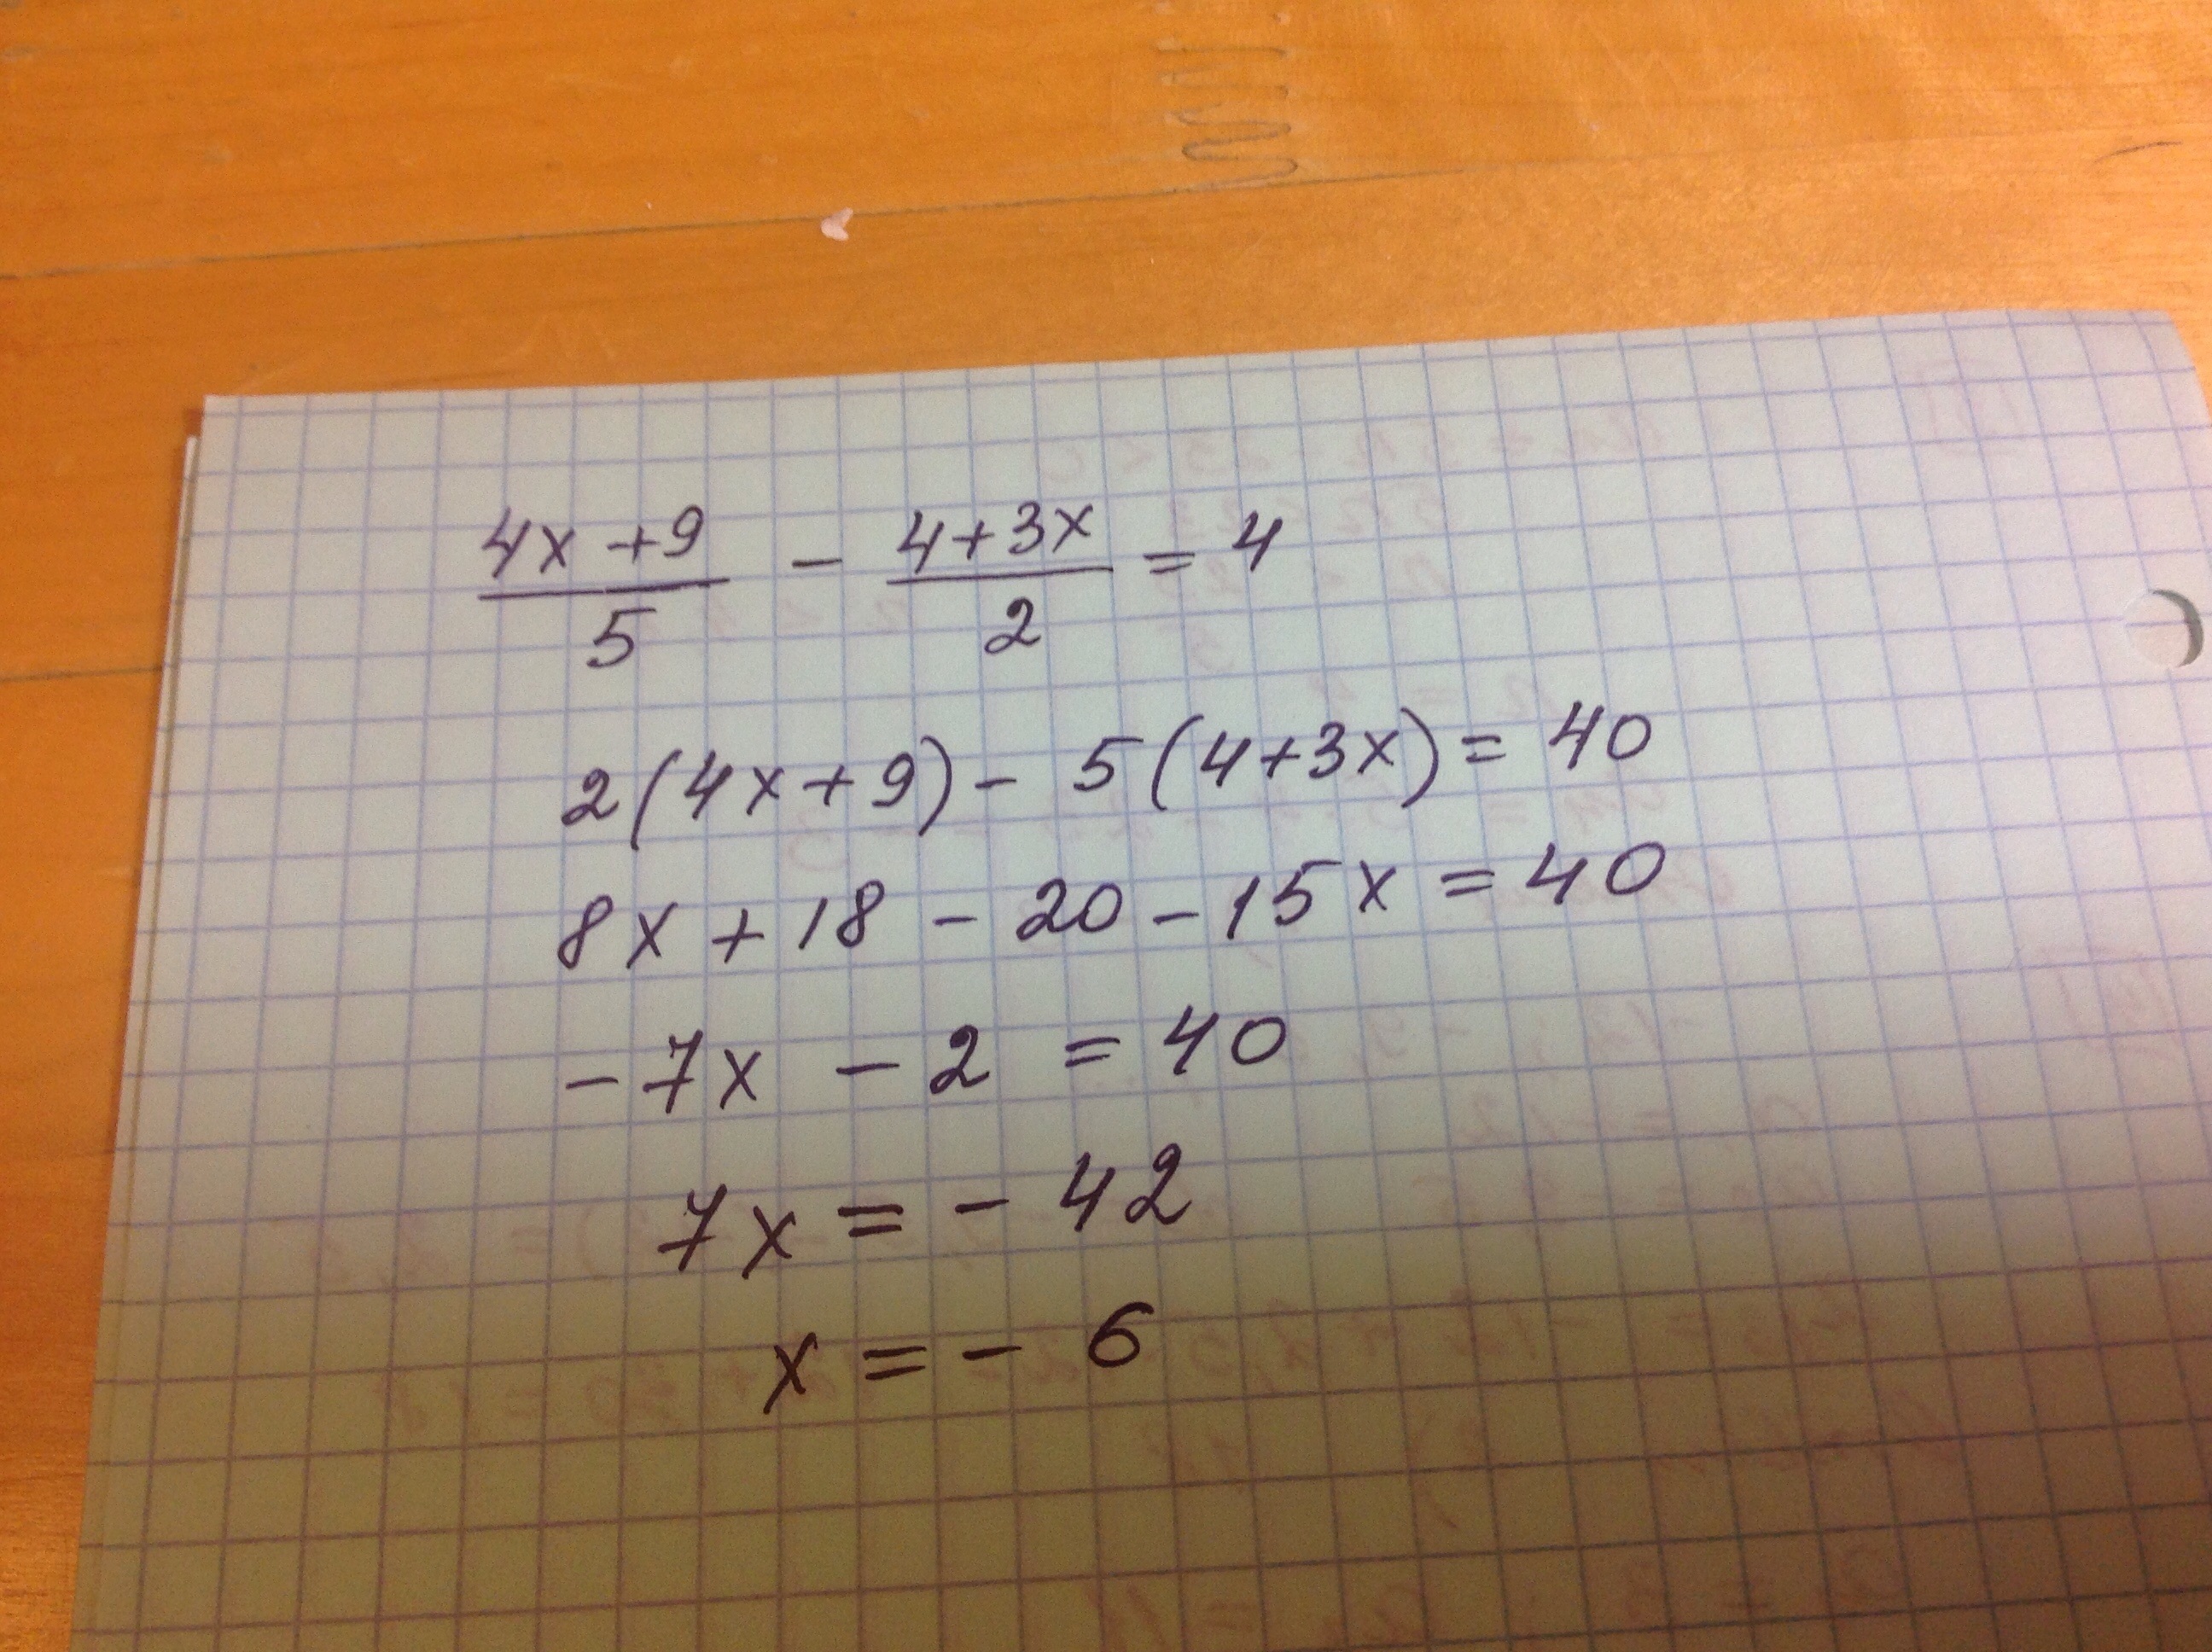 (4x+9)/5 - (4+3x)/2 = 4
2(4x+9) - 5(4+3x) = 40
8x + 18 - 20 - 15x = 40
-7x - 2 = 40
7x = - 42
x = - 6